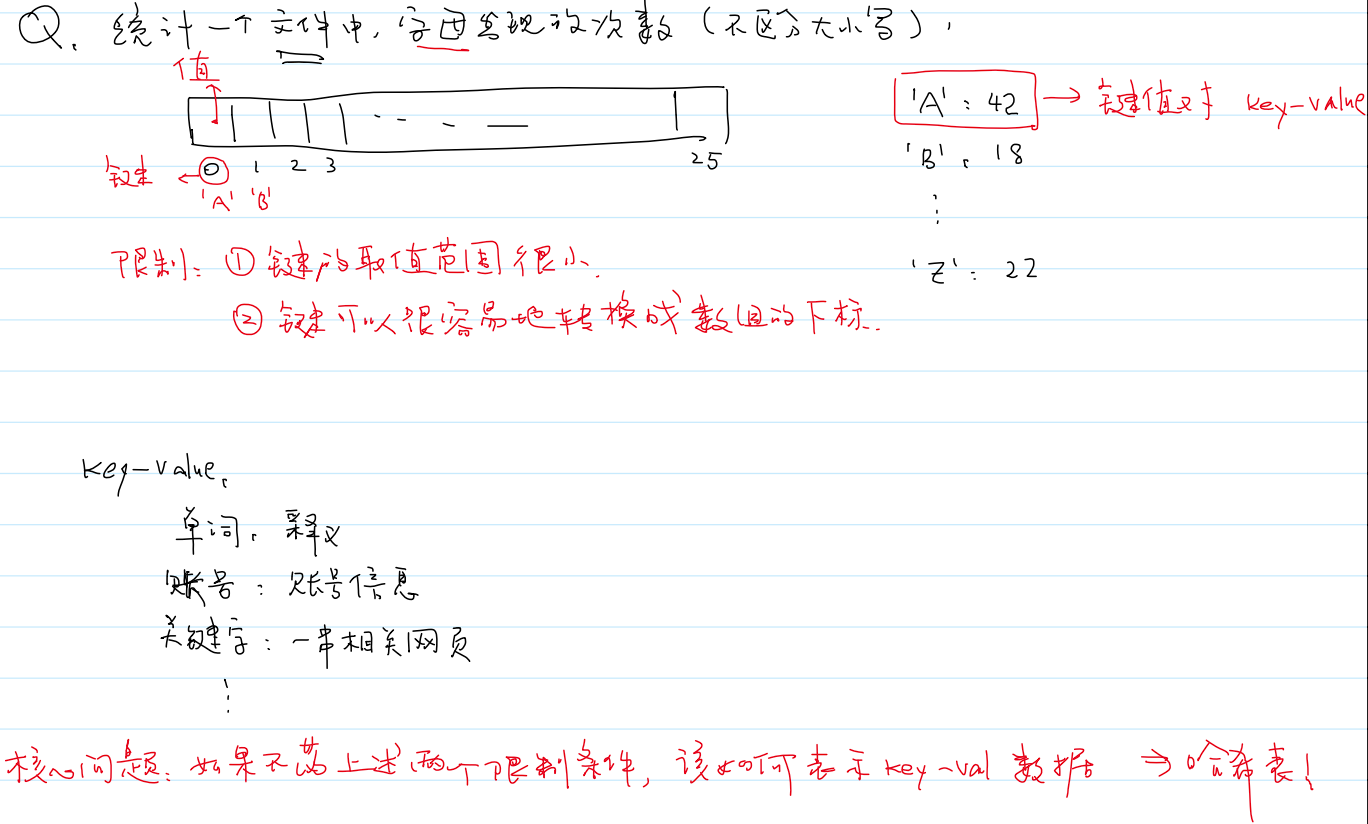 Q. 统计一个文件中,字母出现的次数(不区分大小写).
值
'A' : 42 → 键值对 key-value
'B' : 18
⋮
'Z' : 22
键 ← 0 1 2 3 25
'A' 'B'
限制: ① 键的取值范围很小.
② 键可以很容易地转换成数组的下标.
key-value.
单词: 释义
账号: 账号信息
关键字: 一串相关网页
⋮
核心问题: 如果不满上述两个限制条件, 该如何表示 key-val 数据 ⇒ 哈希表!